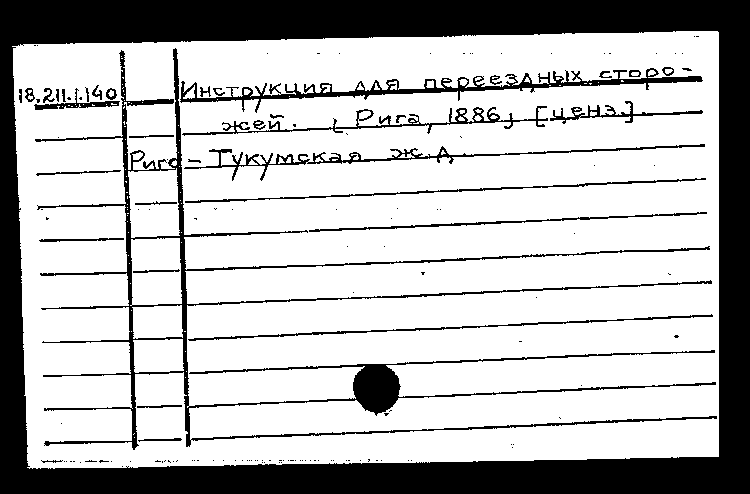 18.211.1.140 Инструкция для переездных сторо-
жей. [Рига, 1886] [ценз.].
Риго-Тукумская ж.д.